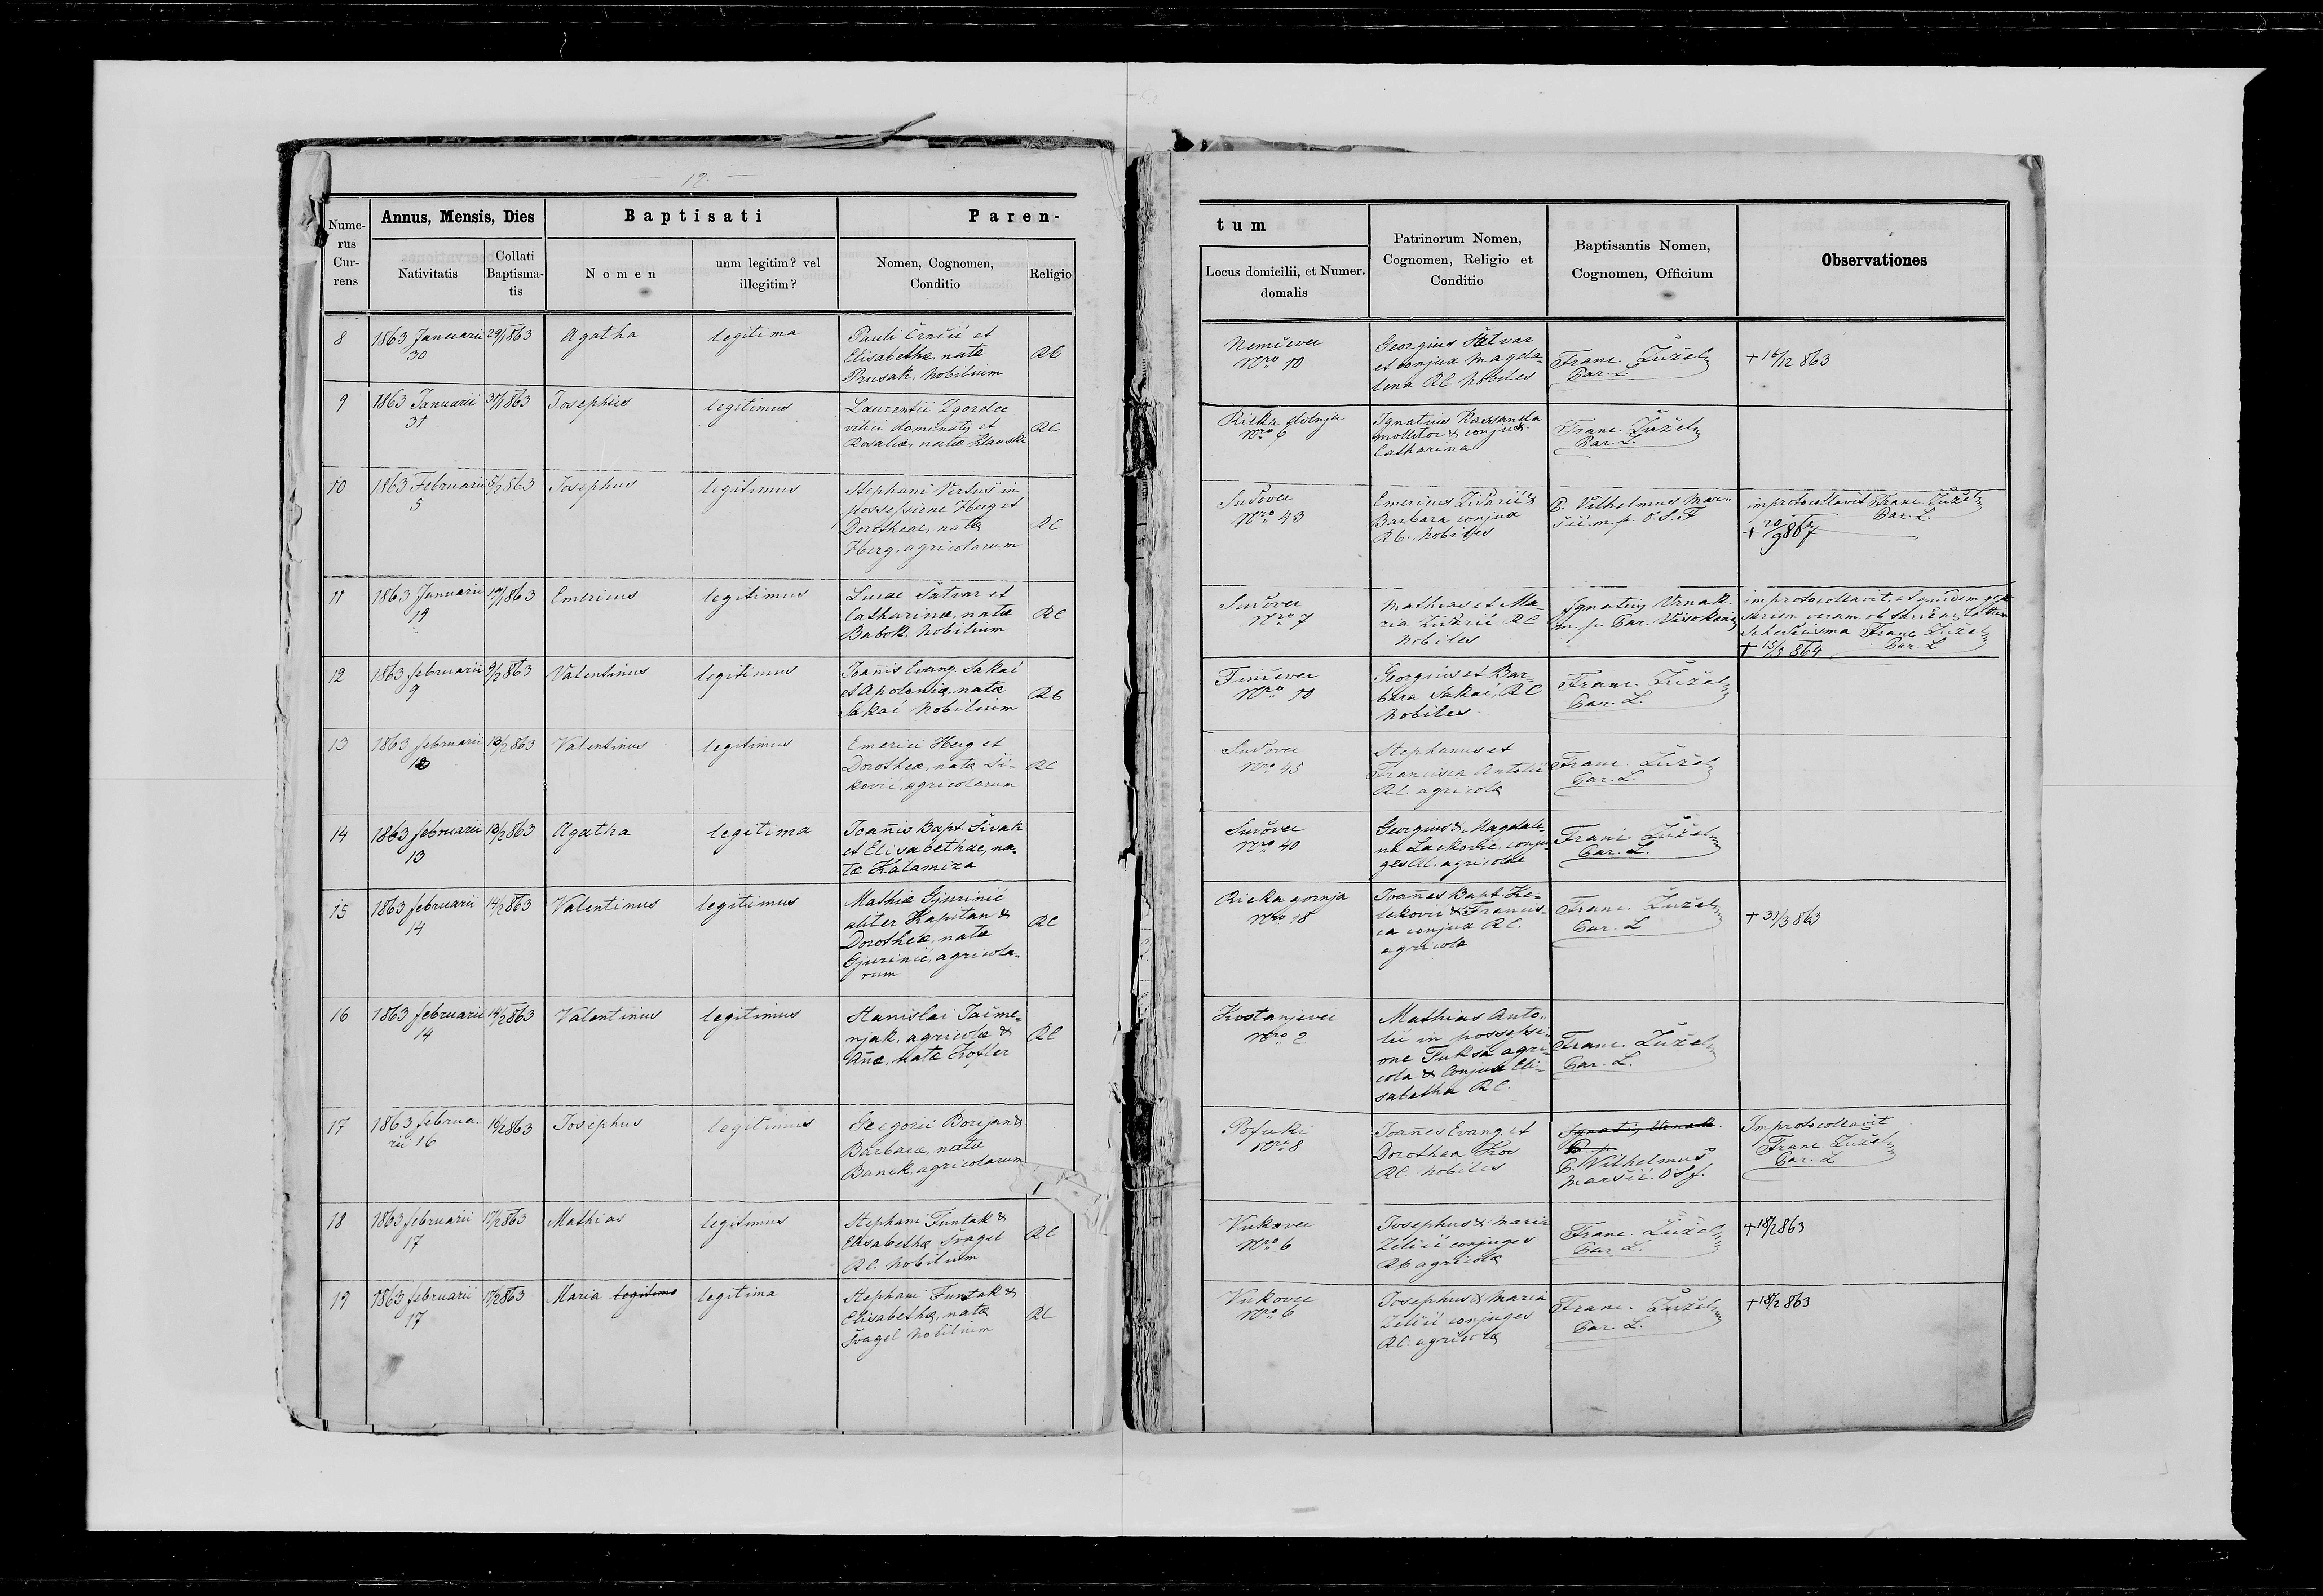 12.
Nume-
rus
Cur-
rens
Annus, Mensis, Dies
Nativitatis
Collati
Baptisma-
tis
Baptisati
Nomen
unm legitim? vel
illegitim?
Paren-
Nomen, Cognomen,
Conditio
Religio
tum
Locus domicilii, et Numer.
domalis
Patrinorum Nomen,
Cognomen, Religio et
Conditio
Baptisantis Nomen,
Cognomen, Officium
Observationes
8
1863 Januarii
30
Agatha
legitima
Pauli Črnčić et
Elisabethæ, natæ
Prusak, Nobilium
RC
Nemčevec
Nro 10
Georgius Šatvar
et conjux Magda-
lena RC. Nobiles
Franc. Žužel
Par. L.
+ 16/12 863
9
1863 Januarii
31
31/1 863
Josephus
legitimus
Laurentii Zgordec
vilici dominatis et
Rosaliæ, natæ
RC
Rieka dolnja
Nro 6
Ignatius
molitor & conjux
Catharina
Franc. Žužel
Par. L.
10
1863 Februarii
5
5/2 863
Josephus
legitimus
Stephani Vertuš in
possessione Herg et
Dorotheae, natæ
Herg, agricolarum
RC
Sučovec
Nro 43
Emericus Židarić &
Barbara conjux
RC. Nobiles
P. Vilhelmus Mar-
šić m. p. O.S.F
improtocollavit Franc. Žužel
Par. L.
11
1863 Januarii
19
19/1 863
Emericus
legitimus
Lucae Šatvar et
Catharinæ, natæ
Babok, Nobilium
RC
Sučovec
Nro 7
Mathias et Ma-
ria Židarić RC
Nobiles
Ignatius Vrnak
m. p. Par. Visokensis
improtocollavit, et quidem
Franc. Žužel
Par. L
+ 15/3 864
12
1863 februarii
9
9/2 863
Valentinus
legitimus
Joañis Evang. Sakać
et Apoloniæ, natæ
Sakać Nobilium
RC
Finčevec
Nro 10
Georgius et Bar-
bara Sakać, RC
Nobiles
Franc. Žužel
Par. L.
13
1863 februarii
13/2 863
Valentinus
legitimus
Emerici Herg et
Dorotheæ, natæ Ši-
ković, agricolarum
RC
Sučovec
Nro 45
Stephanus et
Francisca Antolić
RC. agricolæ
Franc. Žužel
Par. L.
14
1863 februarii
13
13/2 863
Agatha
legitima
Joañis Bapt. Širak
et Elisabethae, na-
tæ Kalamiza
Sučovec
Nro 40
Georgius & Magdale-
na Lacković, conju-
ges RC. agricolae
Franc. Žužel
Par. L.
15
1863 februarii
14
14/2 863
Valentinus
legitimus
Mathiæ Gjurinić
aliter Kapitan &
Dorotheæ, natæ
Gjurinić, agricola-
rum
RC
Rieka gornja
Nro 18
Joañes Bapt. Ke-
leković & Francis-
ca conjux RC.
agricolæ
Franc. Žužel
Par. L
+ 31/3 863
16
1863 februarii
14
14/2 863
Valentinus
legitimus
Stanislai Jačme-
njak, agricolæ &
Añæ, natæ
RC
Kostanjevec
Nro 2
Mathias Anto-
lić in possessi-
one Fuksa agri-
cola & Conjux Eli-
sabetha RC.
Franc. Žužel
Par. L.
17
1863 februa-
rii 16
16/2 863
Josephus
legitimus
Gregorii Borijan &
Barbaræ, natæ
Banek, agricolarum
Pofuki
Nro 8
Joañes Evang. et
Dorothea Kos
RC. Nobiles
Ignatius Vrnak
P. Wilhelmus
Maršić. OSf.
Improtocollavit
Franc. Žužel
Par. L
18
1863 februarii
17
17/2 863
Mathias
legitimus
Stephani Funtak &
Elisabethæ Švagel
RC. Nobilium
RC
Vukovec
Nro 6
Josephus & Maria
Zelčić conjuges
RC agricolæ
Franc. Žužel
Par. L.
+ 18/2 863
19
1863 februarii
17
17/2 863
Maria legitima
legitima
Stephani Funtak &
Elisabethæ, natæ
Švagel Nobilium
RC
Vukovec
Nro 6
Josephus & Maria
Zelčić conjuges
RC. agricolæ
Franc. Žužel
Par. L.
+ 18/2 863